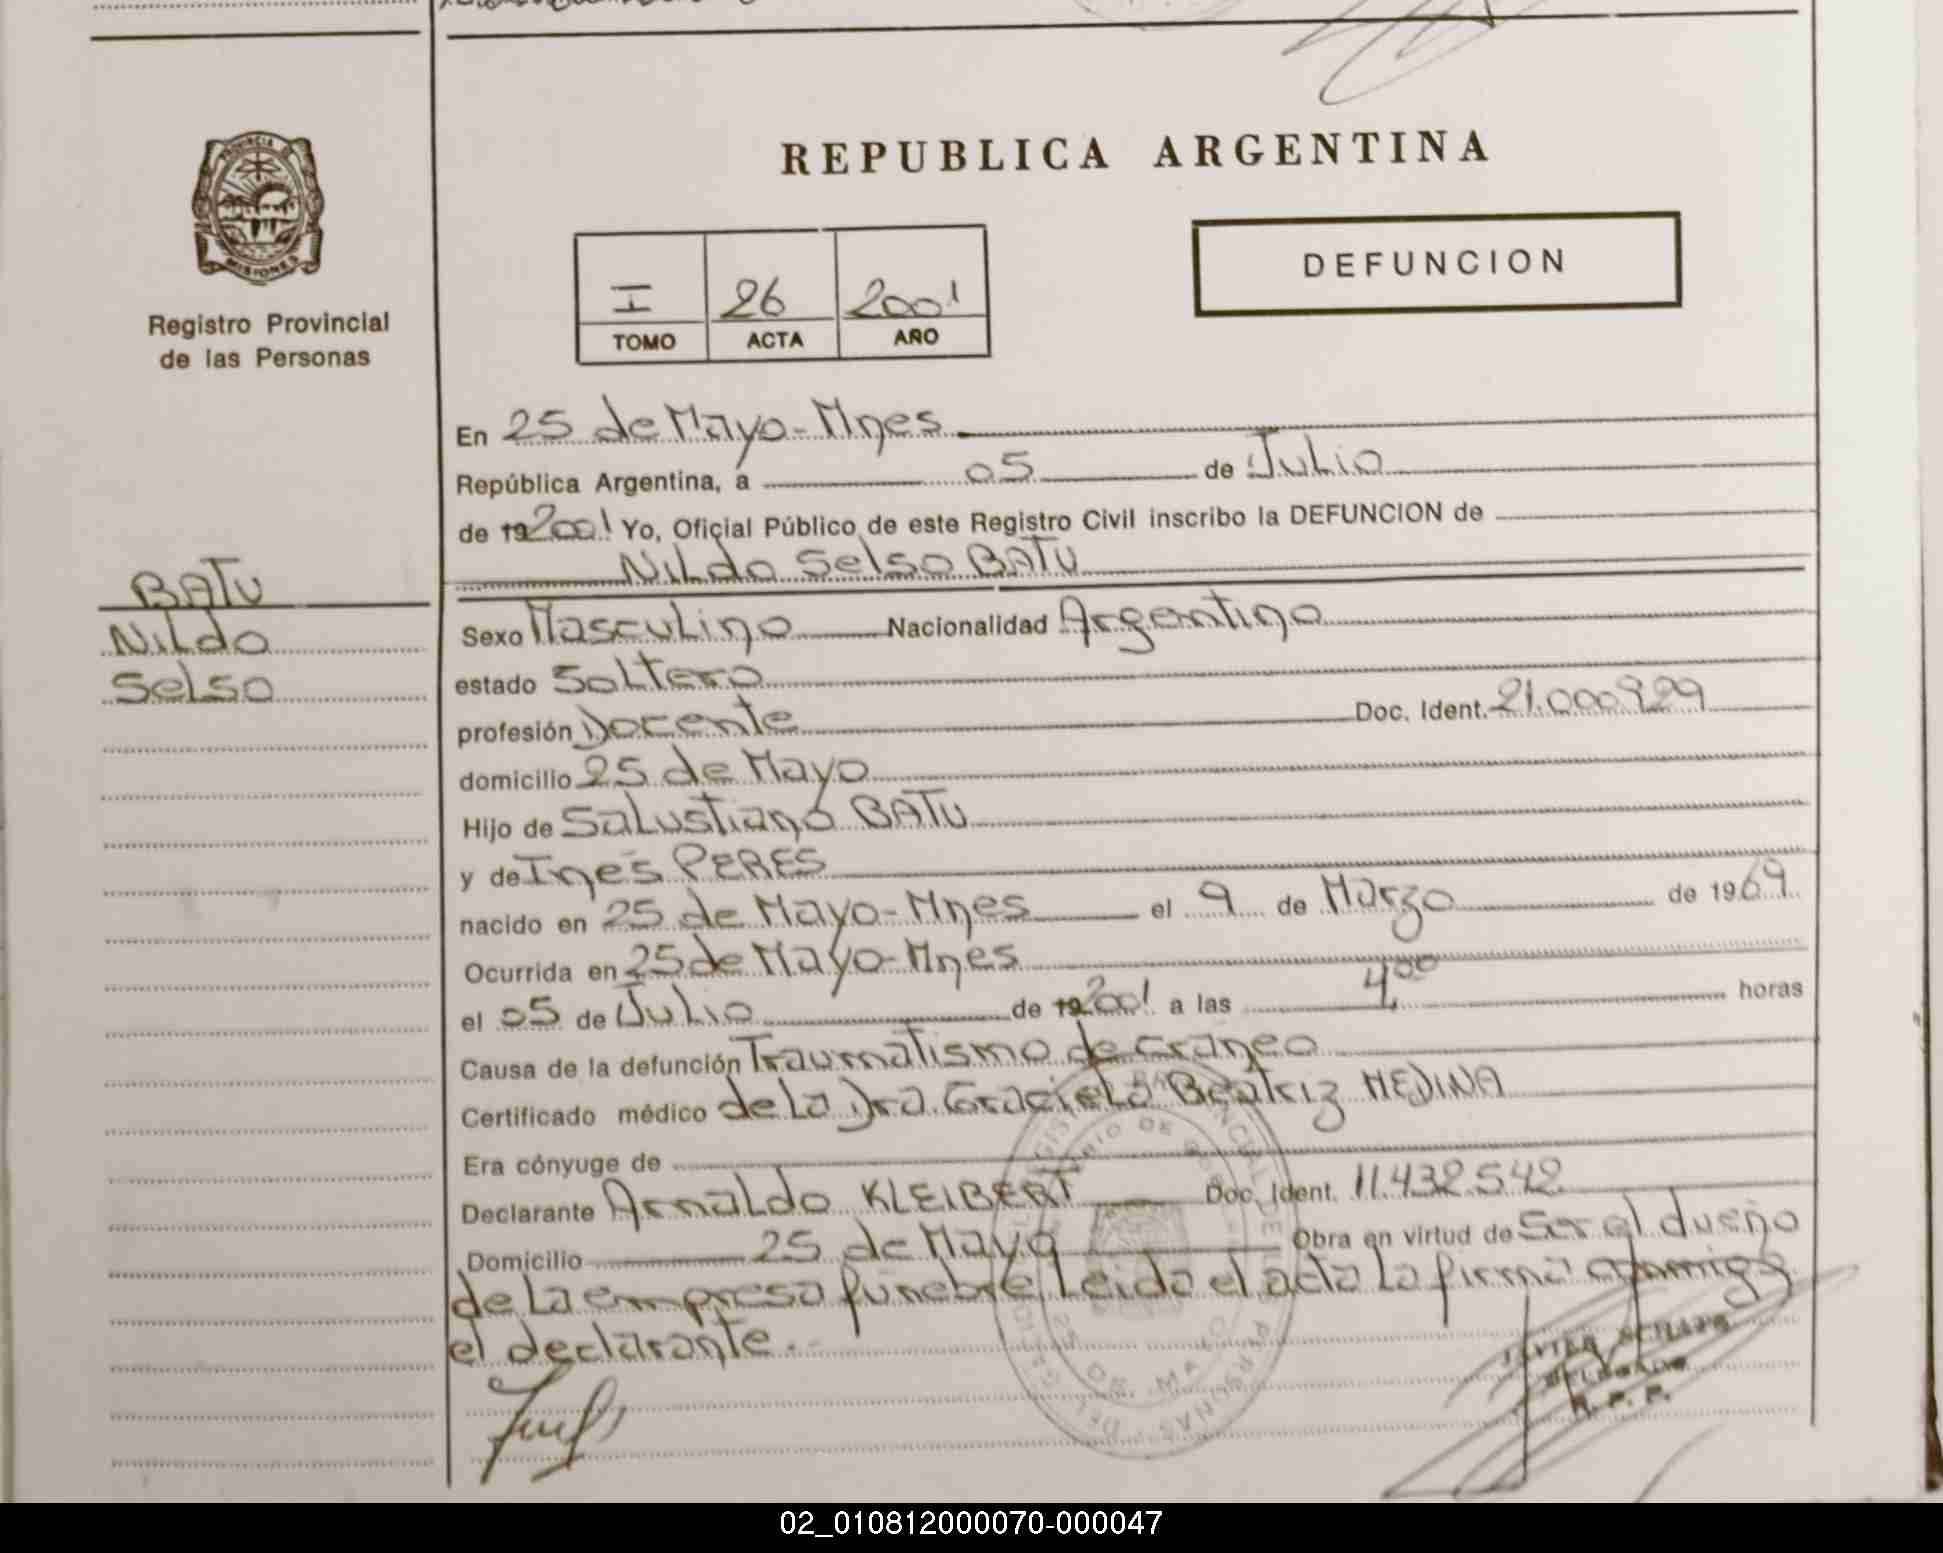 PROVINCIA DE
MISIONES
Registro Provincial
de las Personas
BATU
Nildo
Selso
REPUBLICA ARGENTINA
I 26 2001
TOMO ACTA AÑO
DEFUNCION
En 25 de Mayo-Mnes
República Argentina, a 05 de Julio
de 192001 Yo, Oficial Público de este Registro Civil inscribo la DEFUNCION de
Nildo Selso BATU
Sexo Masculino Nacionalidad Argentino
estado Soltero
profesión Docente Doc. Ident. 21.000929
domicilio 25 de Mayo
Hijo de Salustiano BATU
y de Ines PERES
nacido en 25 de Mayo-Mnes el 9 de Marzo de 1969
Ocurrida en 25 de Mayo-Mnes
el 05 de Julio de 192001 a las 4,00 horas
Causa de la defunción Traumatismo de craneo
Certificado médico de la Dra. Graciela Beatriz MEDINA
Era cónyuge de
Declarante Arnaldo KLEIBERT Doc. Ident. 11.432.542
Domicilio 25 de Mayo Obra en virtud de Ser el dueño
de la empresa funebre Leida el acta la firma conmigo
el declarante.-
R. P. P.
02_010812000070-000047